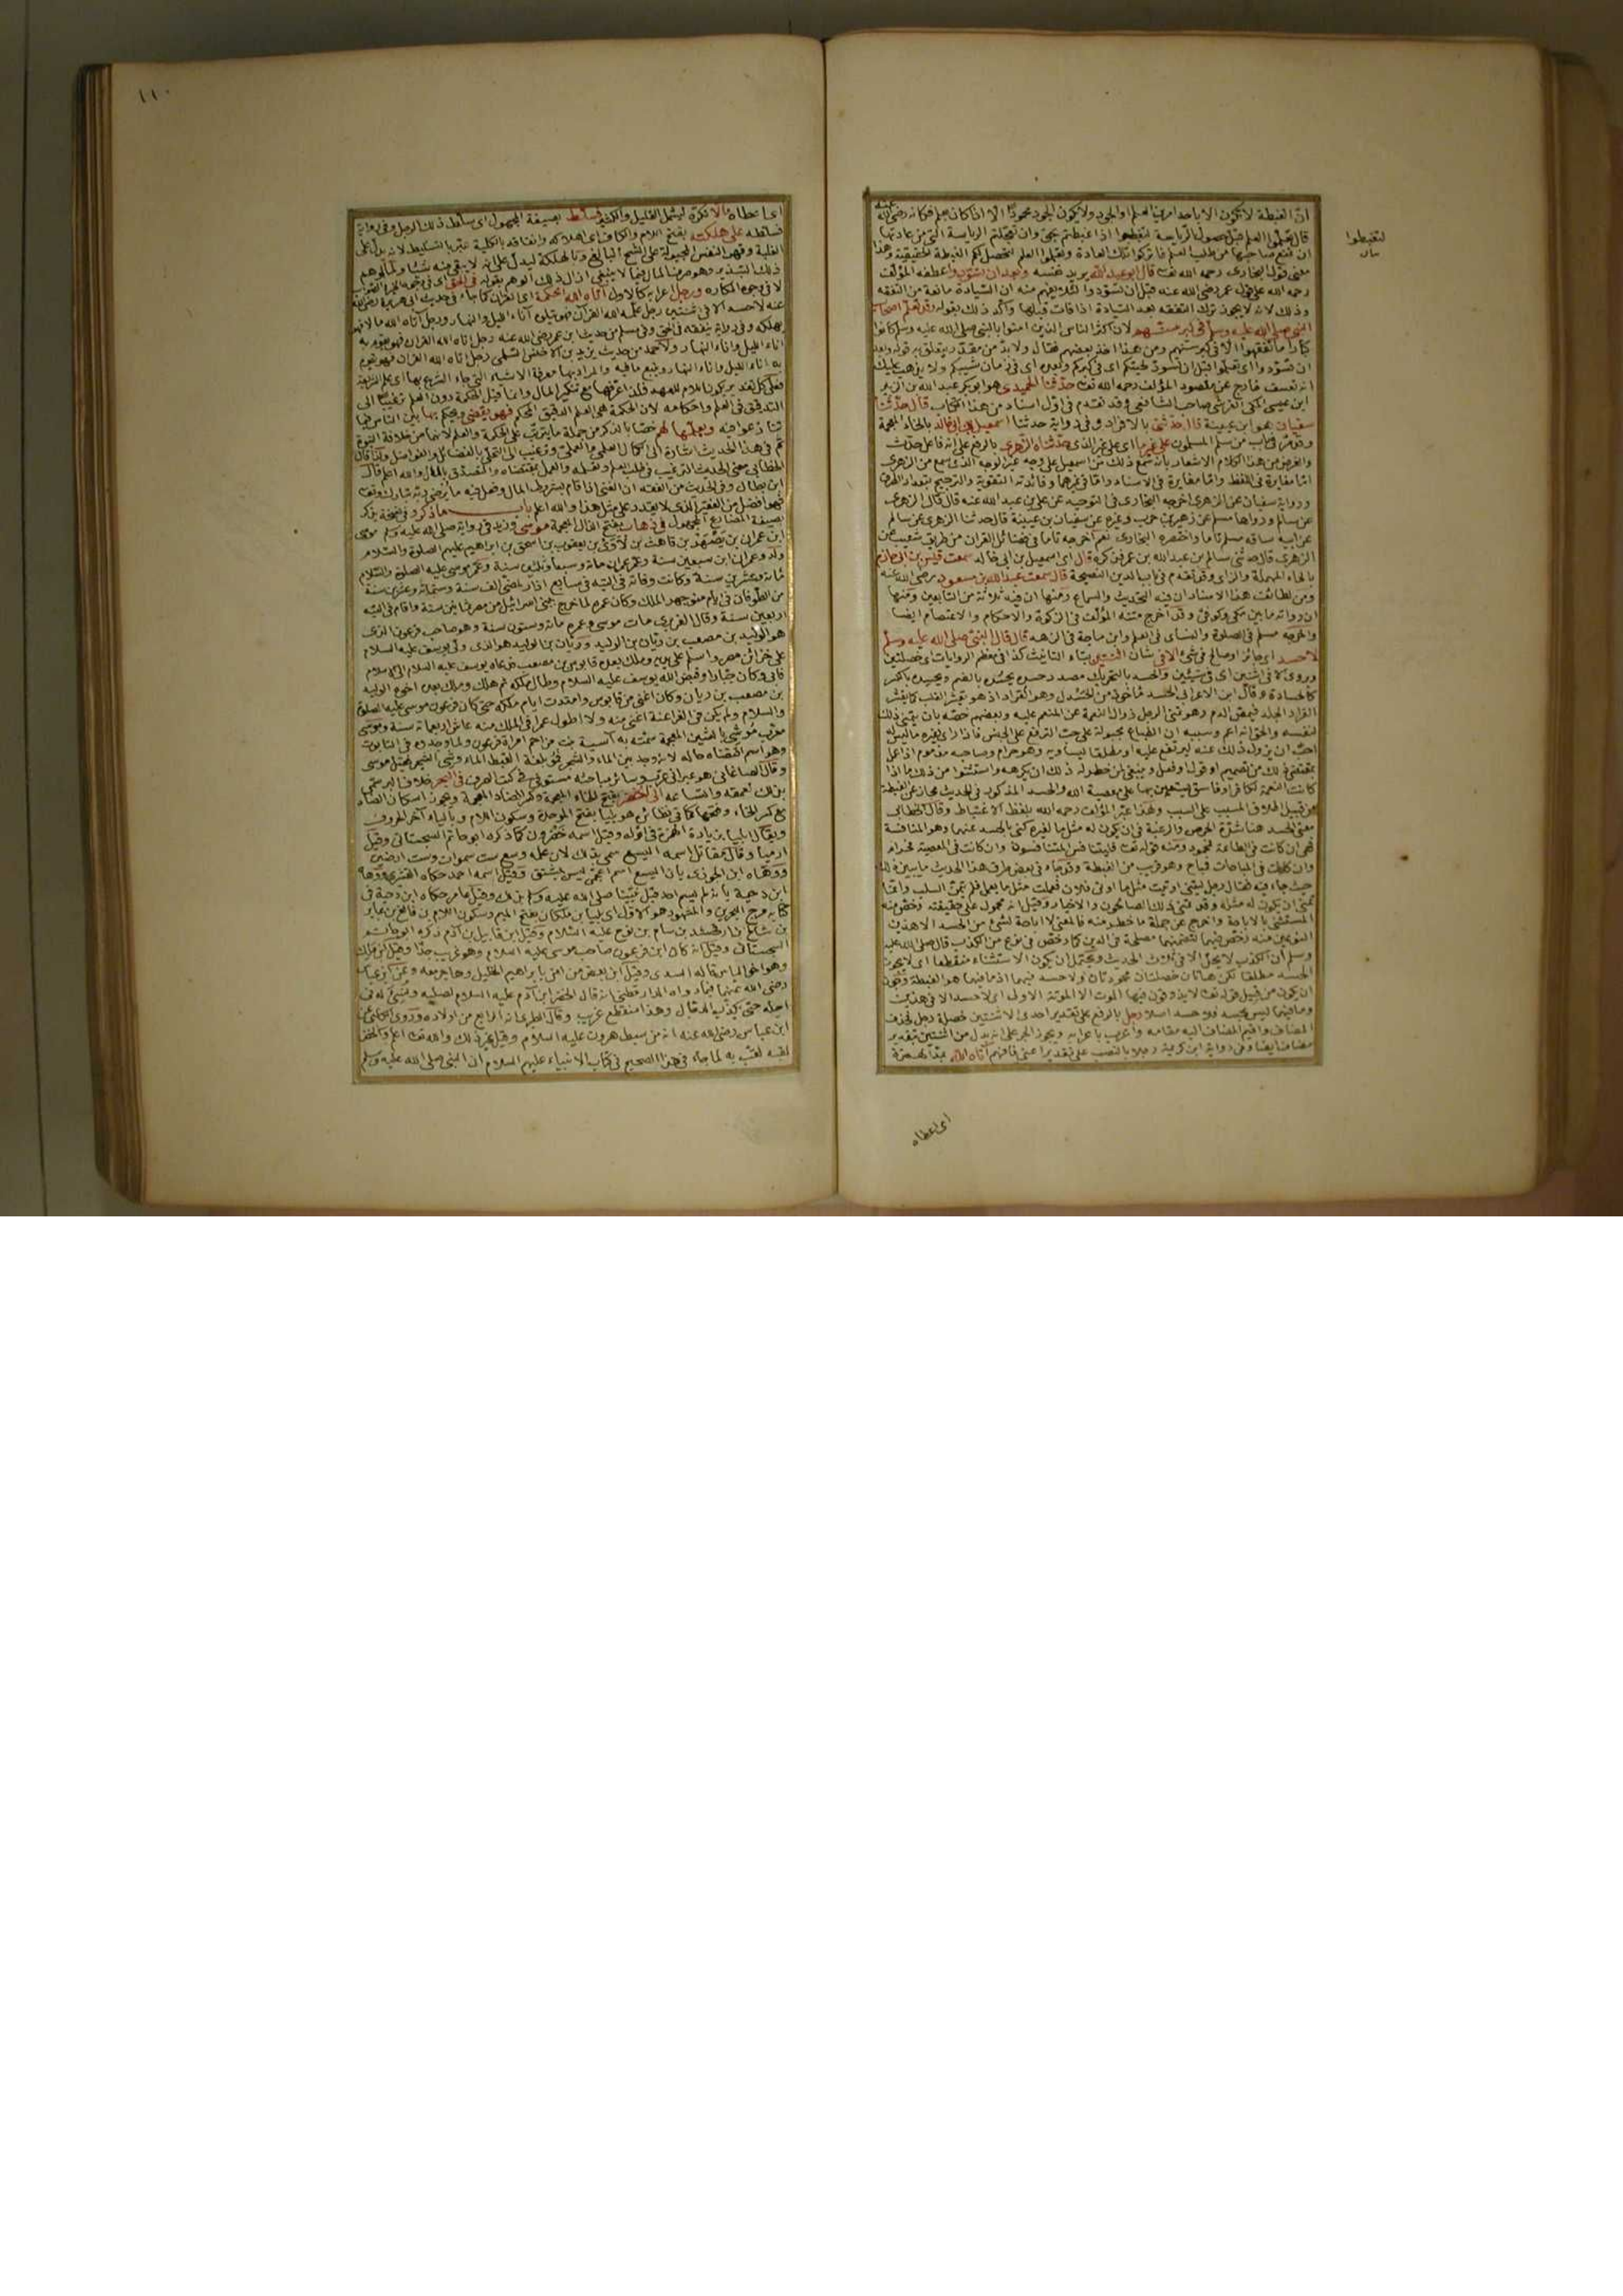 ان الغبطة لا تكون الا باحد امرين العلم او الجود ولا يكون الجود محمودا الا اذا كان بعلم فكانه رضي الله عنه
قال تعلموا العلم قبل حصول الرياسة لتغبطوا اذا غبطتم بحق وان تعجلتم الرياسة التي من عادتها
ان تمنع صاحبها من طلب العلم فاتركوا تلك العادة وتعلموا العلم لتحصل لكم الغبطة الحقيقية وهذا
معنى قول البخاري رحمه الله تعالى قال ابو عبد الله يريد نفسه وبعد ان تسودوا عطفه المؤلف
رحمه الله على قول عمر رضي الله عنه قبل ان تسودوا لئلا يفهم منه ان السيادة مانعة من التفقه
وذلك لانه لا يجوز ترك التفقه بعد السيادة اذا فات قبلها واكد ذلك بقوله وقد تعلم اصحاب
النبي صلى الله عليه وسلم في كبر سنهم لان اكثر الناس الذين امنوا بالنبي صلى الله عليه وسلم كانوا
كبارا ما تفقهوا الا في كبر سنهم ومن هذا اخذ بعضهم فقال ولا بد من مقدر يتعلق به قوله وبعد
ان تسودوا اي تعلموا قبل ان تسود لحيتكم اي في كبركم وبعده اي في زمان شيبكم ولا يذهب عليك
انه تعسف خارج عن مقصود المؤلف رحمه الله تعالى حدثنا الحميدي هو ابو بكر عبد الله بن الزبير
ابن عيسى المكي القرشي صاحب الشافعي وقد تقدم في اول اسناد من هذا الكتاب قال حدثنا
سفيان هو ابن عيينة قال حدثني بالافراد وفي رواية حدثنا اسمعيل بن ابي خالد بالخاء المعجمة
وقد مر في باب من سلم المسلمون على غير ما اي على غير الذي حدثناه الزهري بالرفع على انه فاعل حدث
والغرض من هذا الكلام الاشعار بانه سمع ذلك من اسمعيل على وجه غير الوجه الذي سمع من الزهري
اما مغايرة في اللفظ واما مغايرة في الاسناد واما في غيرهما وفائدته التقوية والترجيح بتعداد الطرق
ورواية سفيان عن الزهري اخرجه البخاري في التوحيد عن علي بن عبد الله عنه قال قال الزهري
عن سالم ورواها مسلم عن زهير بن حرب وغيره عن سفيان بن عيينة قال حدثنا الزهري عن سالم
عن ابيه ساقه مسلم تاما واختصره البخاري نعم اخرجه تاما في فضائل القران من طريق شعيب عن
الزهري قال حدثني سالم بن عبد الله بن عمر فذكره قال اي اسمعيل بن ابي خالد سمعت قيس بن ابي حازم
بالحاء المهملة والزاي وقد تقدم في باب الدين النصيحة قال سمعت عبد الله بن مسعود رضي الله عنه
ومن لطائف هذا الاسناد ان فيه التحديث والسماع ومنها ان فيه ثلاثة من التابعين ومنها
ان رواته ما بين مكي وكوفي وقد اخرج متنه المؤلف في الزكوة والاحكام والاعتصام ايضا
واخرجه مسلم في الصلوة والنسائي في العلم وابن ماجة في الزهد قال قال النبي صلى الله عليه وسلم
لا حسد اي جائز او صالح في شيء الا في شان اثنتين بتاء التانيث كذا في معظم الروايات اي خصلتين
وروى الا في اثنين اي في شيئين والحسد بالتحريك مصدر حسد يحسد بالضم ويحسد بالكسر
كالحسادة وقال ابن الاعرابي الحسد ماخوذ من الحسدل وهو القراد اذ هو يقشر القلب كما يقشر
القراد الجلد فيمص الدم وهو تمني الرجل زوال النعمة عن المنعم عليه وبعضهم خصه بان يتمنى ذلك
لنفسه والحق انه اعم وسببه ان الطباع مجبولة على حب الترفع على الجنس فاذا راى لغيره ما ليس له
احب ان يزول ذلك عنه ليرتفع عليه او مطلقا ليساويه وهو حرام وصاحبه مذموم اذا عمل
بمقتضى ذلك من تصميم او قول او فعل وينبغي لمن خطر له ذلك ان يكرهه واستثنوا من ذلك ما اذا
كانت النعمة لكافر او فاسق يستعين بها على معصية الله والحسد المذكور في الحديث مجاز عن الغبطة
من قبيل اطلاق المسبب على السبب ولهذا عبر المؤلف رحمه الله بلفظ الاغتباط وقال الخطابي
معنى الحسد هنا شدة الحرص والرغبة في ان يكون له مثل ما لغيره كنى بالحسد عنهما وهو المنافسة
فهي ان كانت في الطاعة محمود ومنه قوله تعالى فليتنافس المتنافسون وان كانت في المعصية فحرام
وان كانت في المباحات فمباح وهو قريب من الغبطة وقد جاء في بعض طرق هذا الحديث ما يبين ذلك
حيث جاء فيه فقال رجل ليتني اوتيت مثل ما اوتي فلان فعملت مثل ما يعمل فلم يتمن السلب وانما
تمنى ان يكون له مثله وقد تمنى ذلك الصالحون والاخيار وقيل انه محمول على حقيقته وخص منه
المستثنى بالاباحة واخرج عن جملة ما حظر منه فالمعنى لا اباحة لشيء من الحسد الا هذين
النوعين منه رخص فيهما لتضمنهما مصلحة في الدين كما رخص في نوع من الكذب قال صلى الله عليه
وسلم ان الكذب لا يحل الا في ثلاث الحديث ويحتمل ان يكون الاستثناء منقطعا اي لا يجوز
الحسد مطلقا لكن هاتان خصلتان محمودتان ولا حسد فيهما اذ ما فيهما هو الغبطة وجوز
ان يكون من قبيل قوله تعالى لا يذوقون فيها الموت الا الموتة الاولى اي لا حسد الا في هذين
وما فيهما ليس بحسد فلا حسد اصلا رجل بالرفع على تقدير احدى الاثنتين خصلة رجل فحذف
المضاف واقيم المضاف اليه مقامه واعرب باعرابه ويجوز الجر على انه بدل من اثنتين بتقدير
مضاف ايضا وفي رواية ابن كريمة رجلا بالنصب على تقدير اعني فافهم آتاه الله بمد الهمزة
لتغبطوا
اي اعطاه
١١٠
اي اعطاه مالا نكره ليشمل القليل والكثير فسلط بصيغة المجهول اي سلط ذلك الرجل وفي رواية
فسلطه على هلكته بفتح اللام والكاف اي اهلاكه وانفاقه بالكلية عبر بالتسليط لانه يدل على
الغلبة وقهر النفس المجبولة على الشح البالغ وبالهلكة ليدل على انه لا يبقي منه شيئا ولما اوهم
ذلك التبذير وهو صرف المال فيما لا ينبغي ازال ذلك الوهم بقوله في الحق
لا في وجوه المكاره ورجل اعرابه كالاول آتاه الله الحكمة اي القران كما جاء في حديث ابي هريرة رضي الله
عنه لا حسد الا في اثنتين رجل علمه الله القران فهو يتلوه آناء الليل والنهار ورجل آتاه الله مالا فهو
يهلكه وفي رواية ينفقه في الحق وفي مسلم من حديث ابن عمر رضي الله عنه رجل آتاه الله القران فهو يقوم به
اناء الليل واناء النهار ولاحمد من حديث يزيد بن الاخنس السلمي رجل اتاه الله القران فهو يقوم
به اناء الليل واناء النهار ويتبع ما فيه والمراد بها معرفة الاشياء التي جاء الشرع بها اي علم الشريعة
فعلى كل تقدير يكون اللام للعهد فلذا عرفها مع تنكير المال وانما قيل الحكمة دون العلم ترغيبا الى
التدقيق في العلم واحكامه لان الحكمة هي العلم الدقيق المحكم فهو يقضي ويحكم بها بين الناس فيما
تنازعوا فيه ويعلمها لهم خصا بالذكر من جملة ما يترتب على الحكمة والعلم لانهما من خلافة النبوة
ثم في هذا الحديث اشارة الى الكمال العلمي والعملي وترغيب الى التحلي بالفضائل والفواضل ولذا قال
الخطابي معنى الحديث الترغيب في طلب العلم وتعليمه والعمل بمقتضاه والتصدق بالمال والله اعلم قال
ابن بطال وفي الحديث من الفقه ان الغني اذا قام بشروط المال وفعل فيه ما يرضي ربه تبارك وتعالى
فهو افضل من الفقير الذي لا يقدر على مثل هذا والله اعلم باب ما ذكر وفي نسخة يذكر
بصيغة المضارع المجهول في ذهاب بفتح الذال المعجمة موسى وزيد في رواية صلى الله عليه وسلم موسى
ابن عمران بن يصهر بن قاهث بن لاوى بن يعقوب بن اسحق بن ابراهيم عليهم الصلوة والسلام
ولد وعمران ابن سبعين سنة وعمر عمران مائة وسبعا وثلثين سنة وعمر موسى عليه الصلوة والسلام
مائة وعشرين سنة وكانت وفاته في التيه في سابع اذار لمضي الف سنة وستمائة وعشرين سنة
من الطوفان في ايام منوجهر الملك وكان عمره لما خرج ببني اسرائيل من مصر ثمانين سنة واقام في التيه
اربعين سنة وقال الفربري مات موسى وعمره مائة وستون سنة وهو صاحب فرعون الذي
هو الوليد بن مصعب بن ريان بن الوليد وريان بن الوليد هو الذي ولى يوسف عليه السلام
على خزائن مصر واسلم على يديه وملك بعده قابوس بن مصعب فدعاه يوسف عليه السلام الى الاسلام
فابى وكان جبارا وقبض الله يوسف عليه السلام وطال ملكه ثم هلك وملك بعده اخوه الوليد
بن مصعب بن ريان وكان اعتى من قابوس وامتدت ايام ملكه حتى كان فرعون موسى عليه الصلوة
والسلام ولم يكن في الفراعنة اعتى منه ولا اطول عمرا في الملك منه عاش اربعمائة سنة وموسى
معرب موشى بالشين المعجمة سمته به آسية بنت مزاحم امراة فرعون ولما وجدوه في التابوت
وهو اسم اقتضاه حاله لانه وجد بين الماء والشجر فمو بلغة القبط الماء وشى الشجر فقيل موسى
وقال الصاغاني هو عبراني عرب وسائر مباحثه مستوفى في كتب الصرف في البحر خلاف البر سمي
بذلك لعمقه واتساعه الى الخضر بفتح الخاء المعجمة وكسر الضاد المعجمة ويجوز اسكان الضاد
مع كسر الخاء وفتحها كما في نظائره هو بليا بفتح الموحدة وسكون اللام وبالياء آخر الحروف
ويقال ابليا بزيادة الهمزة في اوله وقيل اسمه خضرون كما ذكره ابو حاتم السجستاني وقيل
ارميا وقال مقاتل اسمه اليسع سمي بذلك لان علمه وسع ست سموات وست ارضين
ووهاه ابن الجوزي بان اليسع اسم اعجمي ليس بمشتق وقيل اسمه احمد حكاه القشيري ووهاه
ابن دحية بانه لم يسم احد قبل نبينا صلى الله عليه وسلم بذلك وقيل عامر حكاه ابن دحية في
كتابه مرج البحرين والمشهور هو الاول اي بليا بن ملكان بفتح الميم وسكون اللام بن فالغ بن عابر
بن شالخ بن ارفخشد بن سام بن نوح عليه السلام وقيل ابن قابيل بن آدم ذكره ابو حاتم
السجستاني وقيل انه كان ابن فرعون صاحب موسى عليه السلام وهو غريب جدا وقيل ابن ملك
وهو اخو الياس قاله السدي وقيل ابن بعض من امن بابراهيم الخليل وهاجر معه وعن ابن عباس
رضي الله عنهما فيما رواه الدارقطني انه قال الخضر ابن آدم عليه السلام لصلبه ونسئ له في
اجله حتى يكذب الدجال وهذا منقطع غريب وقال الطبري انه الرابع من اولاده وروى الكلبي عن
ابن عباس رضي الله عنه انه من سبط هرون عليه السلام وقيل غير ذلك والله تعالى اعلم والخضر
لقبه لقب به لما جاء في هذا الصحيح في كتاب الانبياء عليهم السلام ان النبي صلى الله عليه وسلم